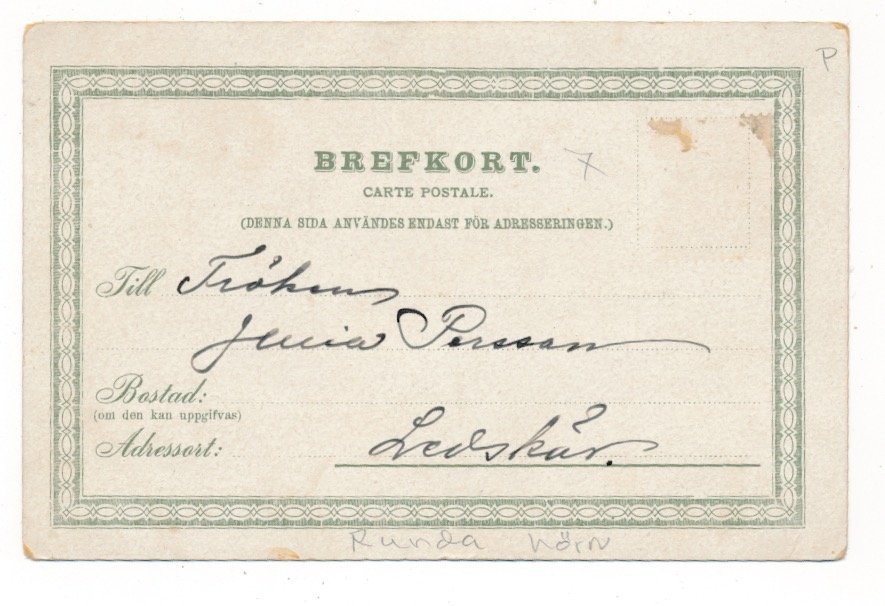 P
BREFKORT. 7
CARTE POSTALE.
(DENNA SIDA ANVÄNDES ENDAST FÖR ADRESSERINGEN.)
Till Fröken
Persson
Bostad:
(om den kan uppgifvas)
Adressort: Ledskär.
Runda hörn